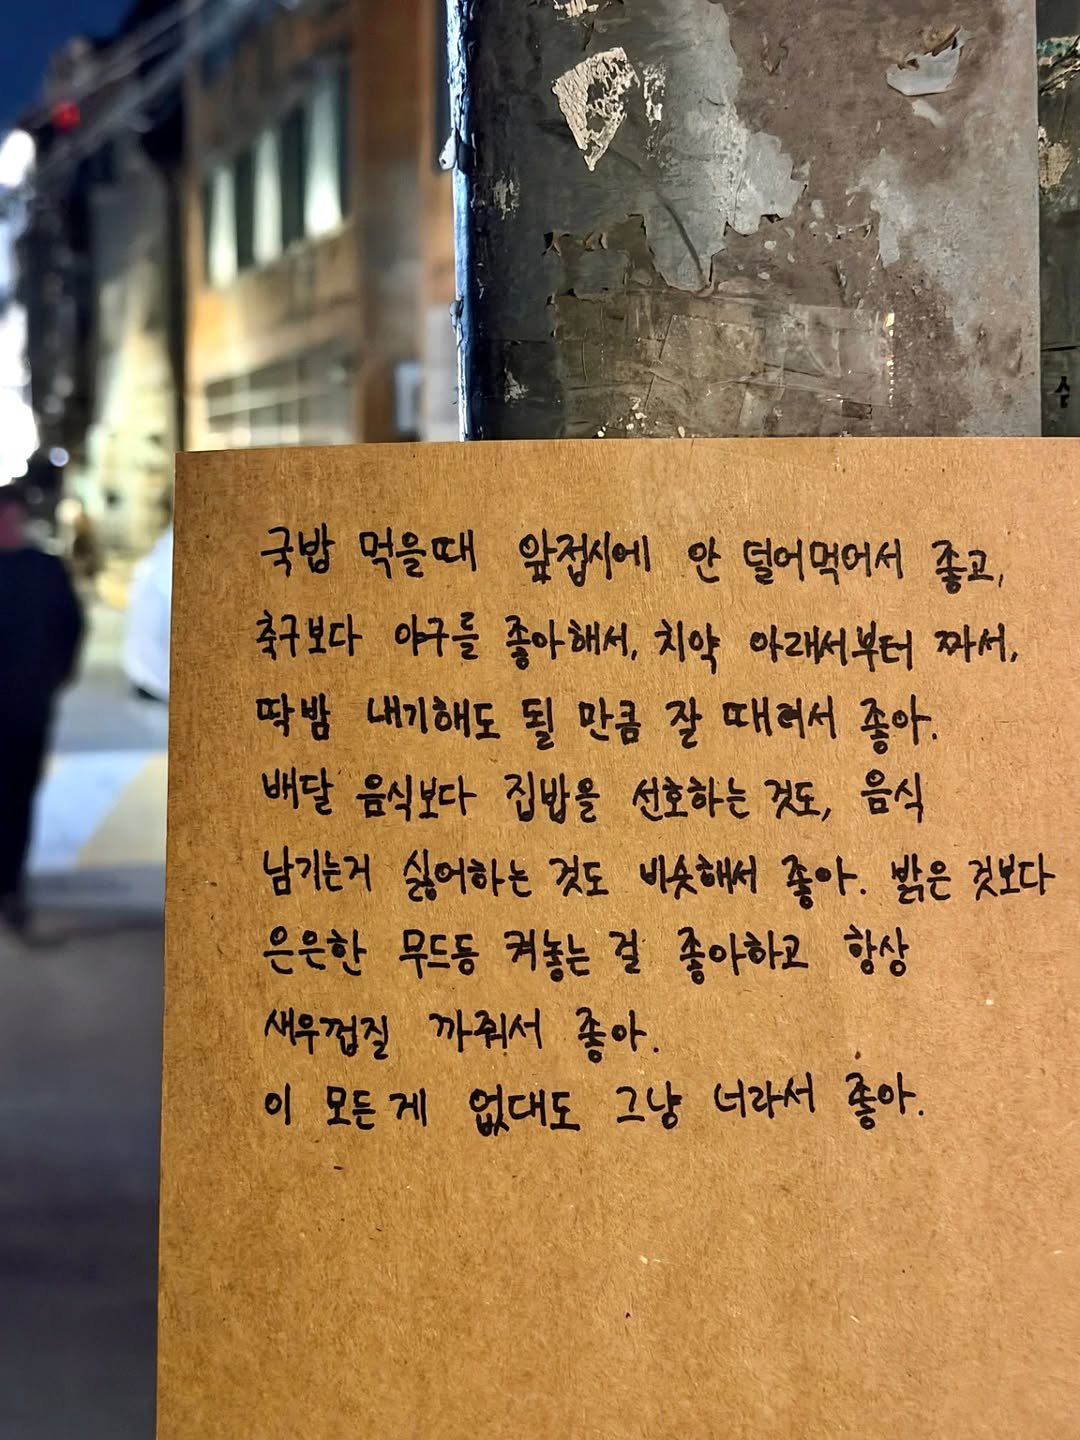 국밥 먹을때 앞접시에 안 덜어먹어서 좋고,
축구보다 야구를 좋아해서, 치약 아래서부터 짜서,
딱밤 내기해도 될 만큼 잘 때려서 좋아.
배달 음식보다 집밥을 선호하는 것도, 음식
남기는거 싫어하는 것도 비슷해서 좋아. 밝은 것보다
은은한 무드등 켜놓는 걸 좋아하고 항상
새우껍질 까줘서 좋아.
이 모든게 없대도 그냥 너라서 좋아.